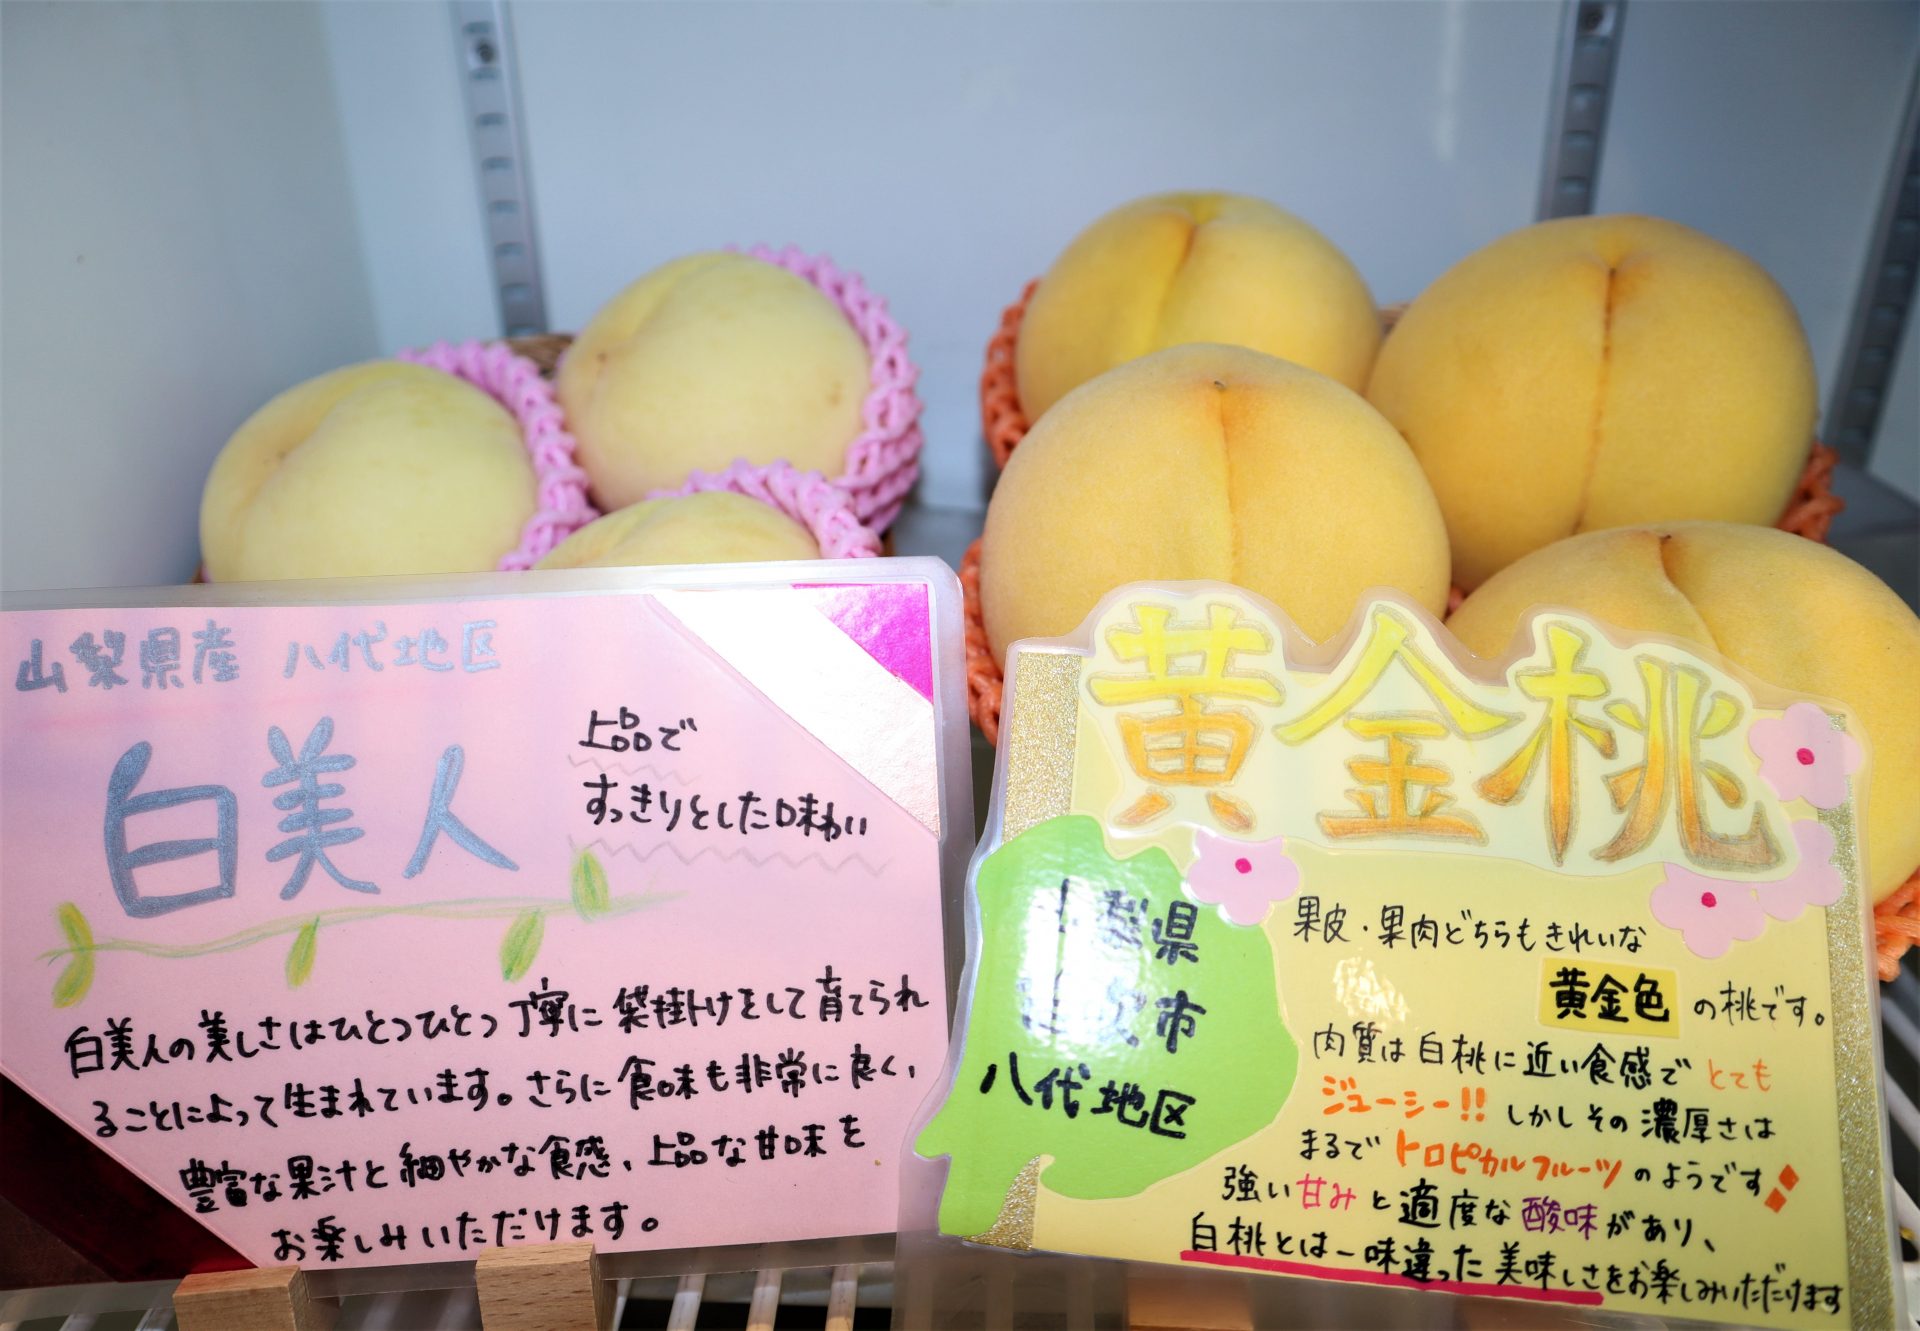 山梨県産 八代地区
白美人
上品で
すっきりとした味わい
白美人の美しさはひとつひとつ丁寧に袋掛けをして育てられ
ることによって生まれています。さらに食味も非常に良く、
豊富な果汁と細やかな食感、上品な甘味を
お楽しみいただけます。
黄金桃
県
市
八代地区
果皮・果肉どちらもきれいな
黄金色の桃です。
肉質は白桃に近い食感でとても
ジューシー!! しかしその濃厚さは
まるでトロピカルフルーツのようです!
強い甘みと適度な酸味があり、
白桃とは一味違った美味しさをお楽しみいただけます